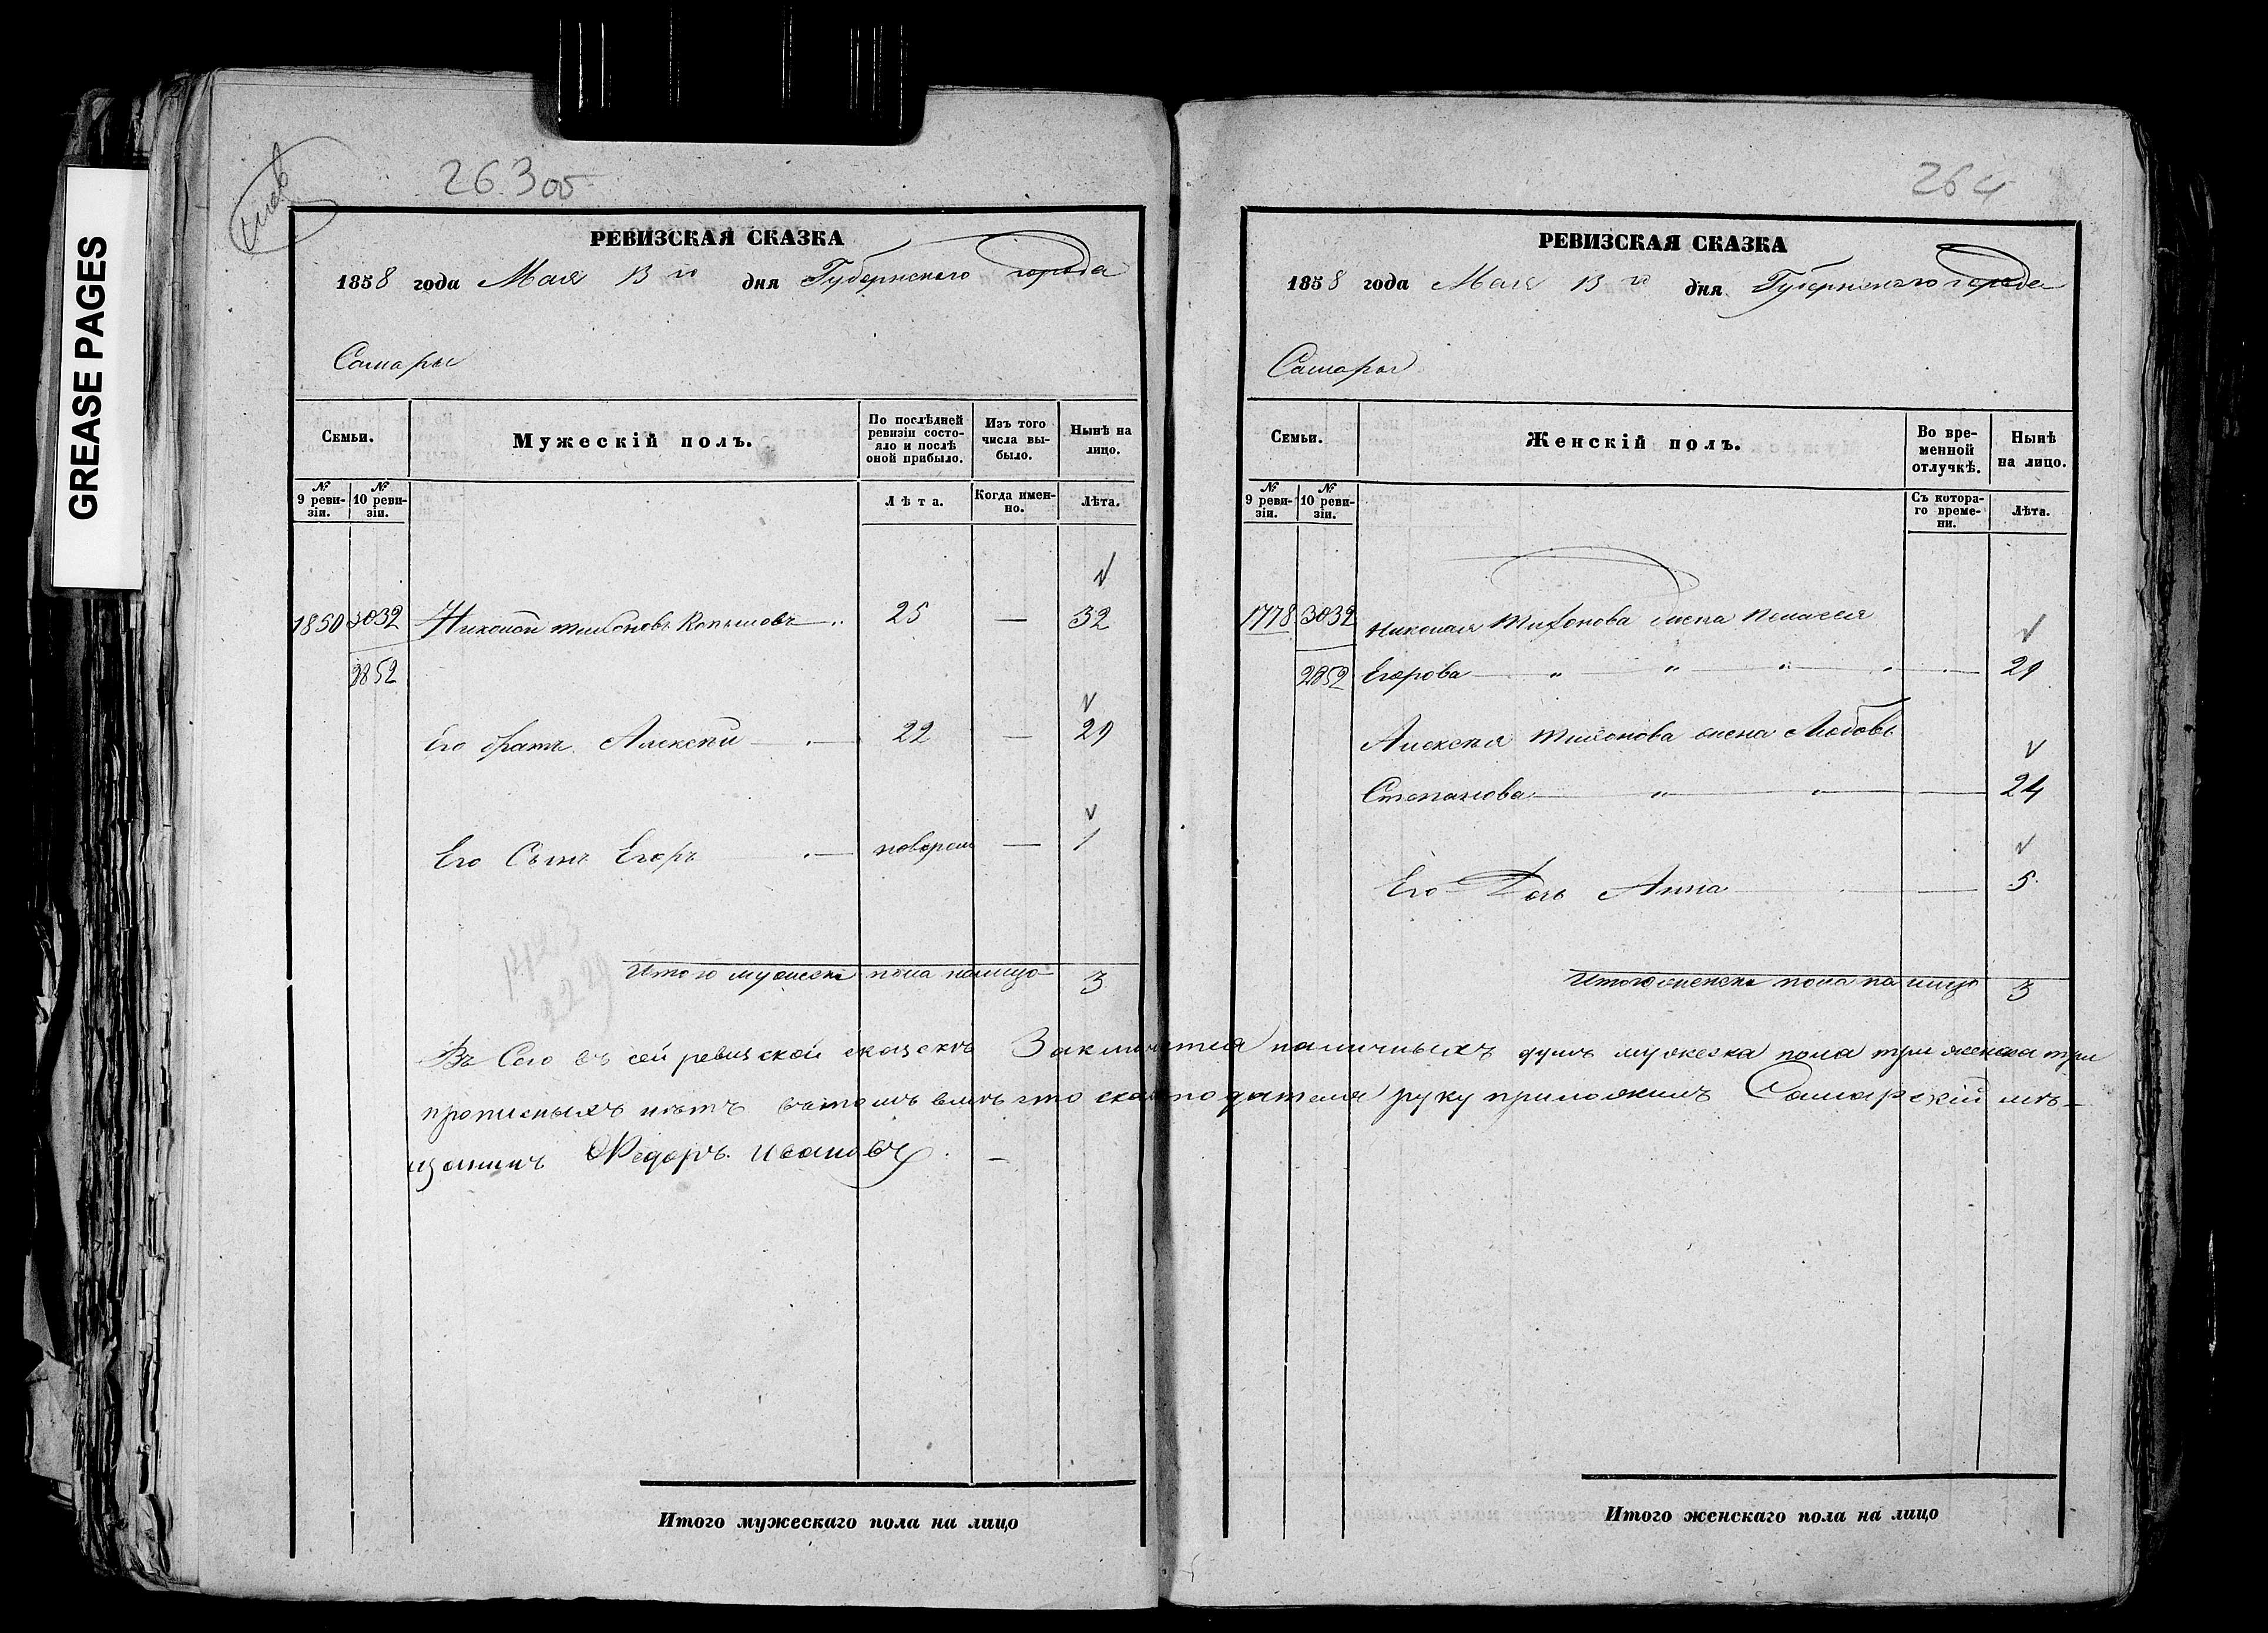 GREASE PAGES
263об
РЕВИЗСКАЯ СКАЗКА
1858 года Мая 13 го дня Губернскаго города
Самары
Семьи.
Мужескій полъ.
По послѣдней ревизіи состояло и послѣ оной прибыло.
Изъ того числа выбыло.
Нынѣ на лицо.
№ 9 ревизіи.
№ 10 ревизіи.
Лѣта.
Когда именно.
Лѣта.
1850 3032 Николай Тихоновъ 25 — 32
2852
Его братъ Алексѣй — 22 — 29
Его Сынъ Егоръ — новорож — 1
Итого мужеска пола налицо 3
264
РЕВИЗСКАЯ СКАЗКА
1858 года Мая 13 го дня Губернскаго города
Самары
Семьи.
Женскій полъ.
Во временной отлучкѣ.
Нынѣ на лицо.
№ 9 ревизіи.
№ 10 ревизіи.
Съ котораго времени.
Лѣта.
1778 3032 Николая Тихонова жена Пелагея
2852 Егорова — " — " — " — 29
Алексѣя Тихонова жена Любовь
Степанова — " — " — 24
Его Дочь Анна — 5
Итого женска пола на лицо 3
въ сей ревизской сказскѣ Заключается наличныхъ душъ мужеска пола три женска три
прописныхъ нѣтъ вътомъ вмѣсто сказкоподателя руку приложилъ Самарскій мѣ-
щанинъ Федоръ Ивановъ. —
Итого мужескаго пола на лицо
Итого женскаго пола на лицо